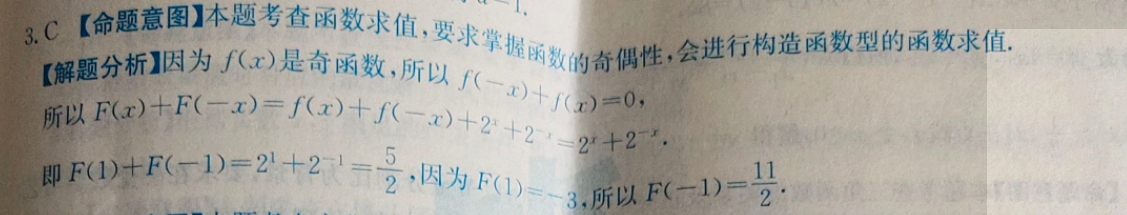 3. C 【命题意图】本题考查函数求值,要求掌握函数的奇偶性,会进行构造函数型的函数求值.
【解题分析】因为 f(x)是奇函数,所以 f(-x)+f(x)=0,
所以 F(x)+F(-x)=f(x)+f(-x)+2ˣ+2⁻ˣ=2ˣ+2⁻ˣ.
即 F(1)+F(-1)=2¹+2⁻¹=5/2,因为 F(1)=-3,所以 F(-1)=11/2.